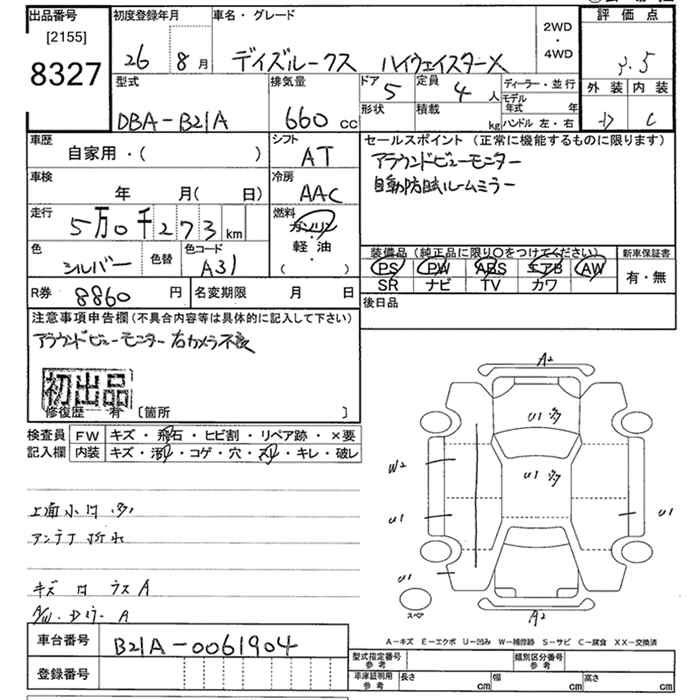 出品番号 初度登録年月 車名・グレード 評価点
[2155]
8327
26 8月 デイズルークス ハイウェイスターX
2WD
・
4WD
3.5
型式 排気量 ドア 定員 ディーラー・並行 外装 内装
DBA-B21A 660cc 5 4人
モデル年式 年
形状 積載 kg ハンドル 左・右
D C
車歴 シフト セールスポイント（正常に機能するものに限ります）
自家用・( ) AT アラウンドビューモニター
車検 冷房 自動防眩ルームミラー
年 月( 日) AAC
走行 燃料
5万0千273km ガソリン
軽油
・
( )
色 色替 色コード 装備品（純正品に限り○をつけてください） 新車保証書
シルバー A31 PS PW ABS エアB AW 有・無
SR ナビ TV カワ
R券 8860円 名変期限 月 日 後日品
注意事項申告欄（不具合内容等は具体的に記入して下さい）
アラウンドビューモニター 右カメラ不良
初出品
修復歴 有 〔箇所 〕
検査員 FW キズ・飛石・ヒビ割・リペア跡・×要
記入欄 内装 キズ・汚れ・コゲ・穴・スレ・キレ・破レ
上面小U 多
アンテナ折れ
キズ U ラスA
A/W・Dミラー A
A2
U1 多
U1 多
W2
U1
U1
U1
スペア
A2
A－キズ E－エクボ U－凹み W－補修跡 S－サビ C－腐食 XX－交換済
車台番号 B21A-0061904
登録番号
型式指定番号 参考 類別区分番号 参考
車庫証明用 参考 長さ cm 幅 cm 高さ cm